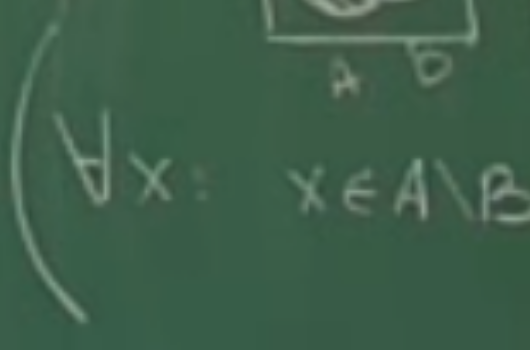 A B
(∀x: x∈A\B